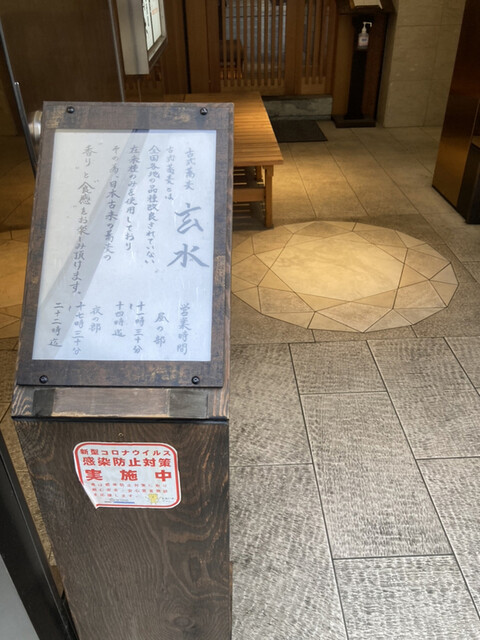 古式蕎麦
玄水
古式蕎麦とは
全国各地の品種改良されていない
在来種のみを使用しており
その為、日本古来の蕎麦の
“香り”と“食感”をお楽しみ頂けます。
営業時間
昼の部
十一時三十分
〜
十四時迄
夜の部
十七時三十分
〜
二十二時迄
新型コロナウイルス
感染防止対策
実施中